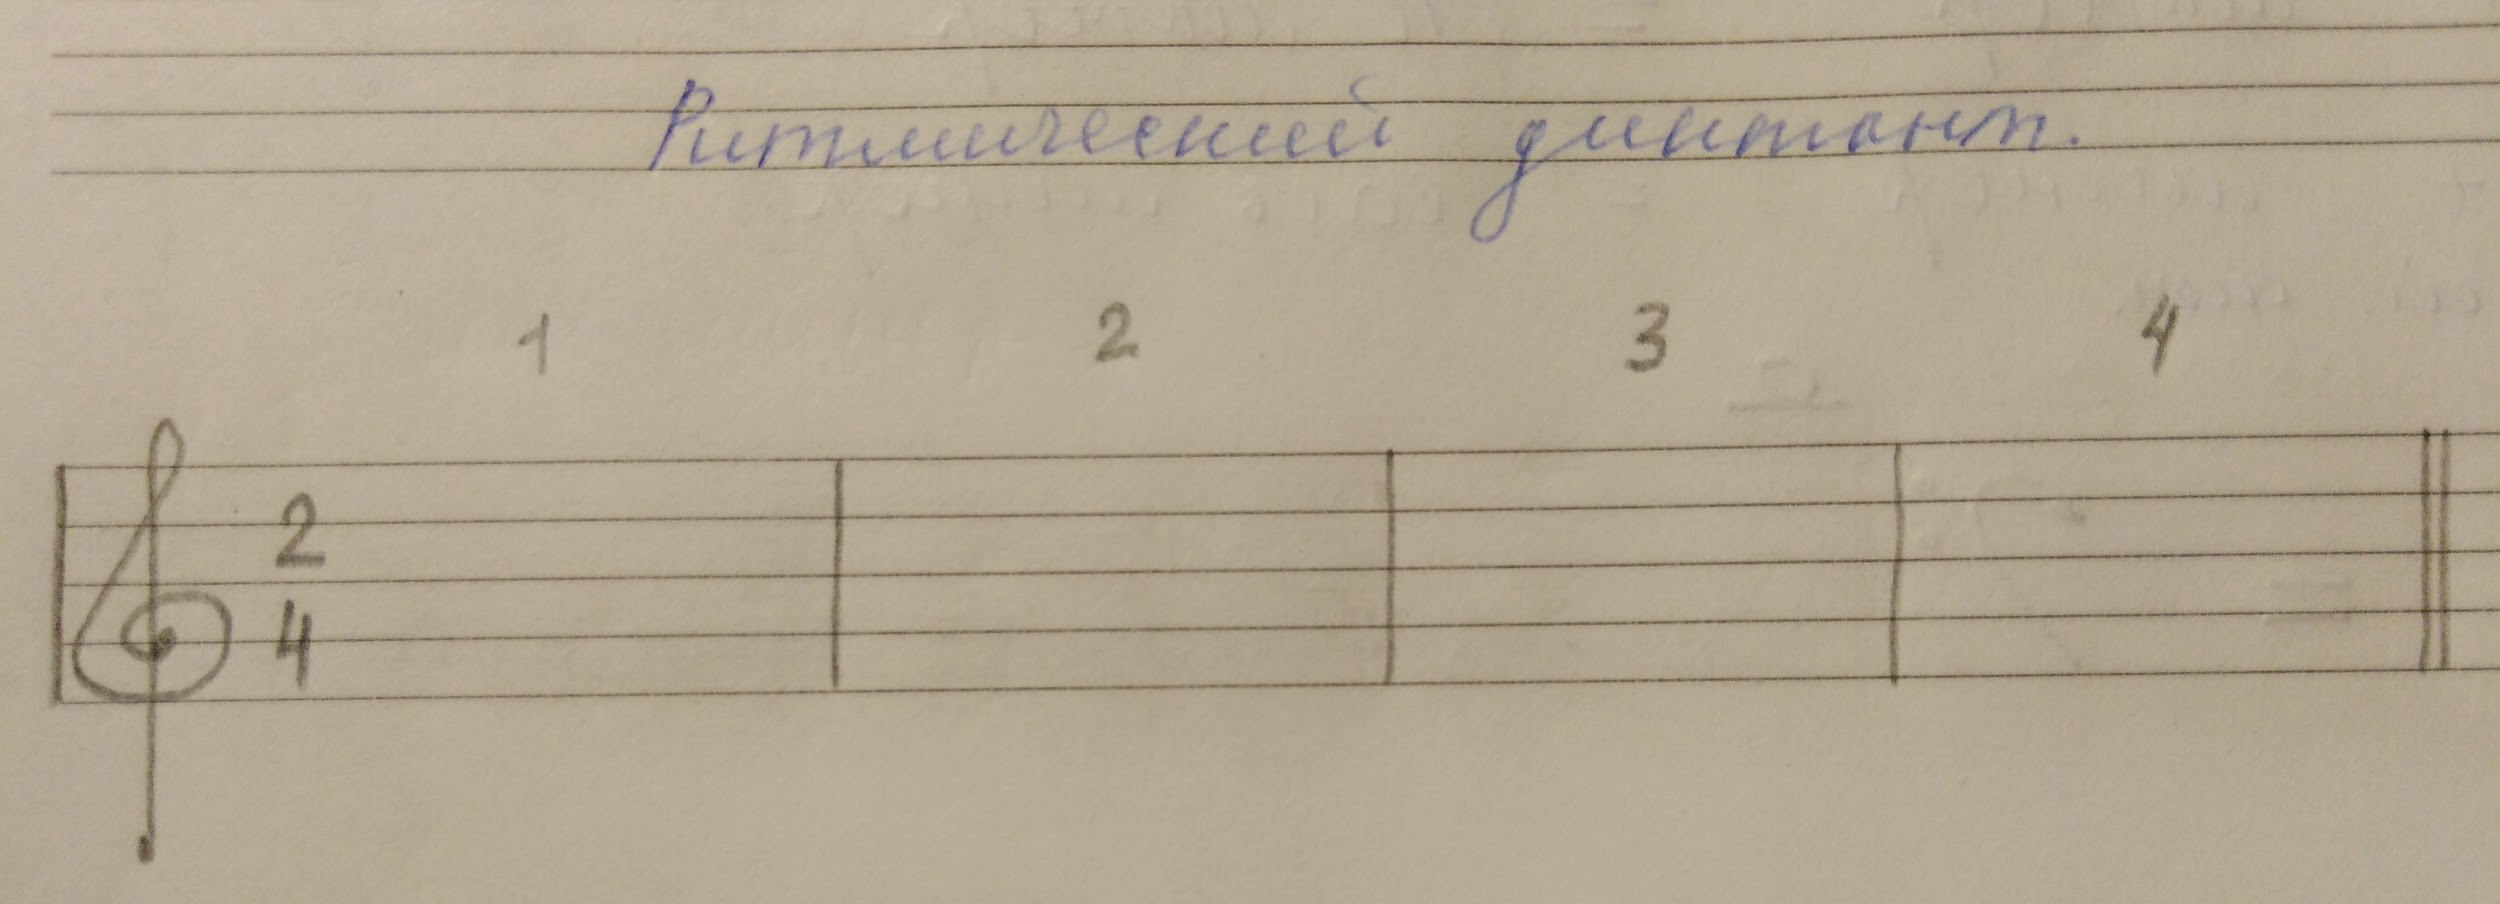 Ритмический диктант.
1 2 3 4
2
4